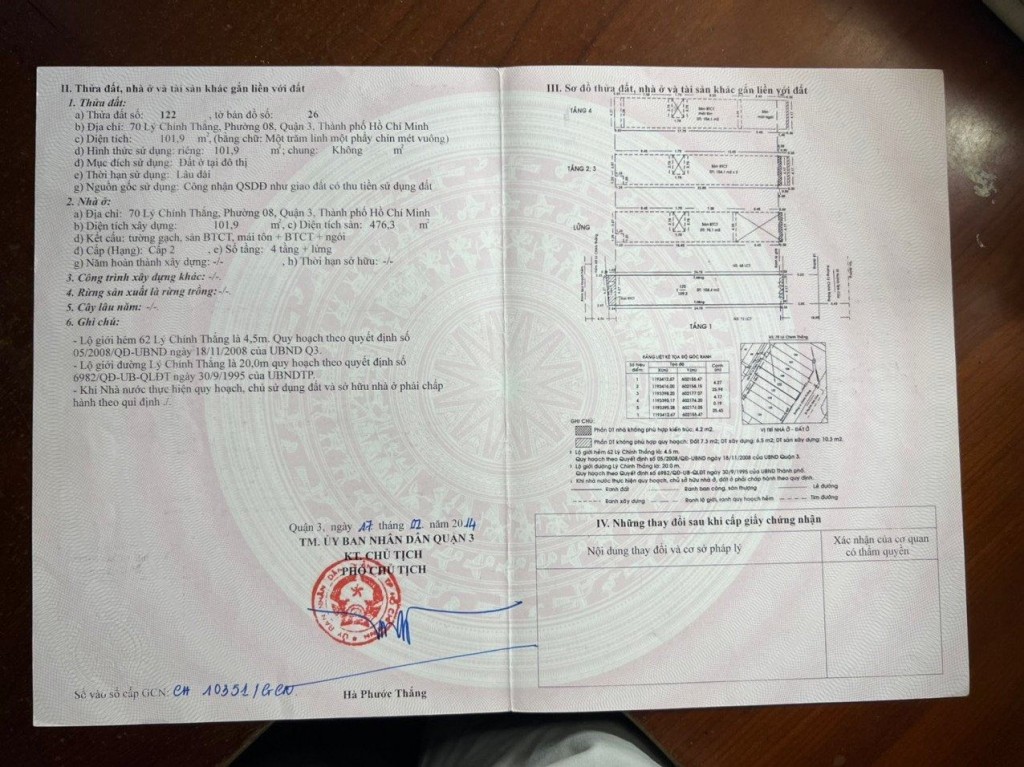 II. Thửa đất, nhà ở và tài sản khác gắn liền với đất
1. Thửa đất:
a) Thửa đất số: 122 , tờ bản đồ số: 26
b) Địa chỉ: 70 Lý Chính Thắng, Phường 08, Quận 3, Thành phố Hồ Chí Minh
c) Diện tích: 101,9 m², (bằng chữ: Một trăm linh một phẩy chín mét vuông)
d) Hình thức sử dụng: riêng: 101,9 m²; chung: Không m²
đ) Mục đích sử dụng: Đất ở tại đô thị
e) Thời hạn sử dụng: Lâu dài
g) Nguồn gốc sử dụng: Công nhận QSDĐ như giao đất có thu tiền sử dụng đất
2. Nhà ở:
a) Địa chỉ: 70 Lý Chính Thắng, Phường 08, Quận 3, Thành phố Hồ Chí Minh
b) Diện tích xây dựng: 101,9 m², c) Diện tích sàn: 476,3 m²
d) Kết cấu: tường gạch, sàn BTCT, mái tôn + BTCT + ngói
đ) Cấp (Hạng): Cấp 2 , e) Số tầng: 4 tầng + lửng
g) Năm hoàn thành xây dựng: -/- , h) Thời hạn sở hữu: -/-
3. Công trình xây dựng khác: -/-.
4. Rừng sản xuất là rừng trồng:-/-.
5. Cây lâu năm: -/-.
6. Ghi chú:
- Lộ giới hẻm 62 Lý Chính Thắng là 4,5m. Quy hoạch theo quyết định số
05/2008/QĐ-UBND ngày 18/11/2008 của UBND Q3.
- Lộ giới đường Lý Chính Thắng là 20,0m quy hoạch theo quyết định số
6982/QĐ-UB-QLĐT ngày 30/9/1995 của UBNDTP.
- Khi Nhà nước thực hiện quy hoạch, chủ sử dụng đất và sở hữu nhà ở phải chấp
hành theo qui định ./.
Quận 3, ngày 17 tháng 02 năm 2014
TM. ỦY BAN NHÂN DÂN QUẬN 3
KT. CHỦ TỊCH
PHÓ CHỦ TỊCH
Hà Phước Thắng
Số vào sổ cấp GCN: CH 10351/GCN.
III. Sơ đồ thửa đất, nhà ở và tài sản khác gắn liền với đất
TẦNG 4
TẦNG 2, 3
LỬNG
TẦNG 1
BẢNG LIỆT KÊ TỌA ĐỘ GÓC RANH
VỊ TRÍ NHÀ Ở - ĐẤT Ở
GHI CHÚ:
Phần DT nhà không phù hợp kiến trúc: 4.2 m2.
Phần DT không phù hợp quy hoạch: Đất 7.3 m2; DT xây dựng: 6.5 m2; DT sàn xây dựng: 10.3 m2.
* Lộ giới hẻm 62 Lý Chính Thắng là: 4.5 m.
Quy hoạch theo Quyết định số 05/2008/QĐ-UBND ngày 18/11/2008 của UBND Quận 3.
* Lộ giới đường Lý Chính Thắng là: 20.0 m.
Quy hoạch theo Quyết định số 6982/QĐ-UB-QLĐT ngày 30/9/1995 của UBND Thành phố.
* Khi nhà nước thực hiện quy hoạch, chủ sở hữu nhà ở, đất ở phải chấp hành theo quy định.
Ranh đất Ranh ban công, sân thượng Lề đường
Ranh xây dựng Ranh lộ giới, ranh quy hoạch hẻm Tim đường
IV. Những thay đổi sau khi cấp giấy chứng nhận
Nội dung thay đổi và cơ sở pháp lý
Xác nhận của cơ quan
có thẩm quyền